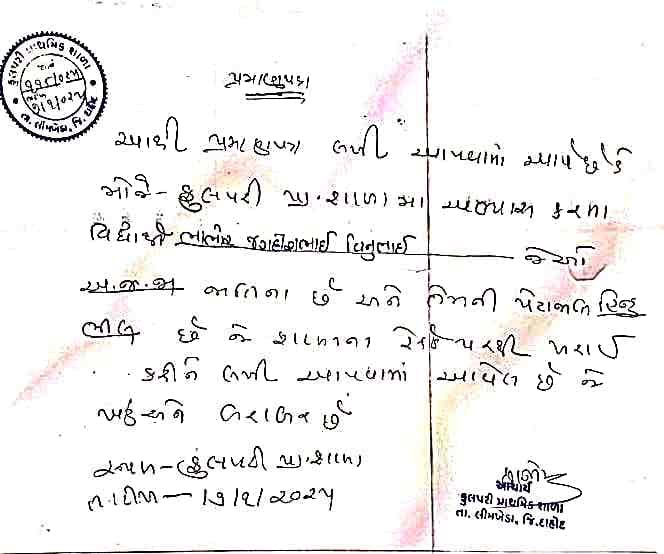 ફુલપરી પ્રાથમિક શાળા
તા. લીમખેડા, જિ. દાહોદ
પ્રમાણપત્ર
આથી પ્રમાણપત્ર લખી આપવામાં આવે છે કે
મોજે - ફુલપરી પ્રા. શાળામાં અભ્યાસ કરતા
વિદ્યાર્થી ભાભોર જગદીશભાઈ વિનુભાઈ જેઓ
અ.જ.જા જાતિના છે અને તેમની પેટાજાતિ હિન્દુ
ભીલ છે જે શાળાના રેકર્ડ પરથી ખરાઈ
કરીને લખી આપવામાં આવેલ છે જે
બરાબર છે
સ્થળ - ફુલપરી પ્રા. શાળા
તારીખ -
આચાર્ય
ફુલપરી પ્રાથમિક શાળા
તા. લીમખેડા, જિ.દાહોદ